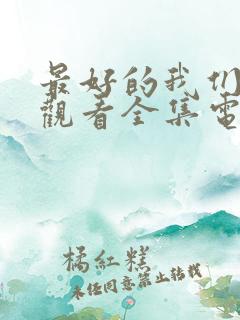 最好的我们
觀看全集電
橘紅糕
未经同意禁止转载